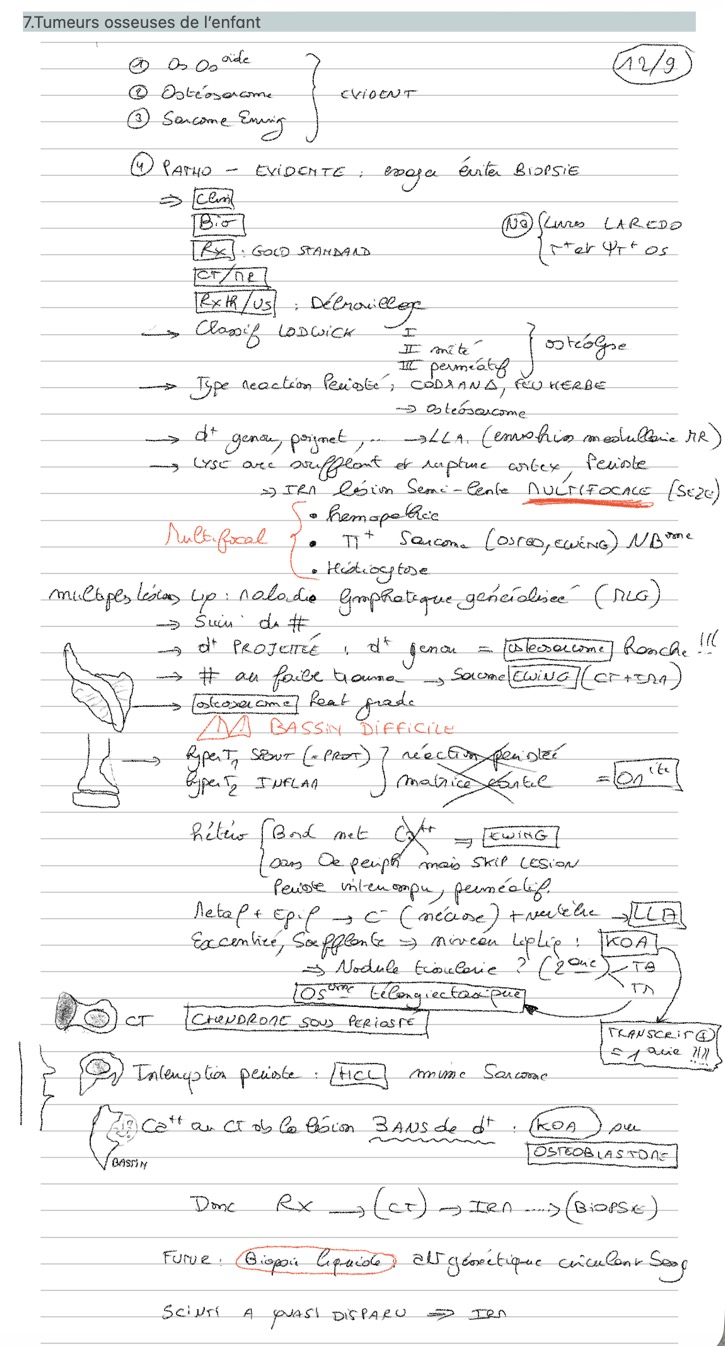 7.Tumeurs osseuses de l'enfant
12/9
① Os Os oïde
② Ostéosarcome
③ Sarcome Ewing
EVIDENT
④ PATHO - EVIDENTE : éviter BIOPSIE
⇒ Clin
Bio
NB Livres LAREDO
T+ et ΨT+ OS
Rx : GOLD STANDARD
CT/MR
RxTH/US : Débrouillage
→ Classif LODWICK I
II mité
III perméatif
ostéolyse
→ Type reaction Perioste, CODMAN Δ, FEU HERBE
→ ostéosarcome
→ d+ genou, poignet, ... → LLA. (envahis medullaire MR)
→ LYSE avec soufflant et rupture cortex, Perioste
⇒ IRM lésion Semi-lente MULTIFOCALE (SEZE)
Multifocal
• hemopathie
• M+ Sarcome (OSTEO, EWING) NBome
• Histiocytose
multiples lésions Lip : maladie lymphatique généralisée (MLG)
→ Suivi du #
→ d+ PROJETÉE : d+ genou = ostéosarcome Hanche !!!
→ # au faible trauma → Sarcome EWING (CT+IRM)
→ osteosarcome haut grade
BASSIN DIFFICILE
→ hyperT1 SPONT (= PROT)
hyperT2 INFLAM
réaction periostée
matrice cartil
= On ite
hétéro Bord net Ca++ ⇒ EWING
sans Oe periph mais SKIP LESION
Perioste interrompu, perméatif.
Metaph + Epiph → C- (nécrose) + vertèbre → LLA
Excentrée, Soufflante ⇒ niveau liqliq : KOA
⇒ Nodule tissulaire ? (2aire) TB
TM
Osome télangiectasique
CT CHONDROME SOUS PERIOSTE
TRANSCRIT ⊕
= 1aire !!!!
Interruption perioste : HCL mime Sarcome
Ca++ au CT ds la lésion 3 ANS de d+ : KOA sur
OSTEOBLASTOME
BASSIN
Donc Rx → (CT) → IRM ....> (BIOPSIE)
FUTUR : Biopsie liquide génétique circulent Sang
SCINTI A QUASI DISPARU ⇒ IRM